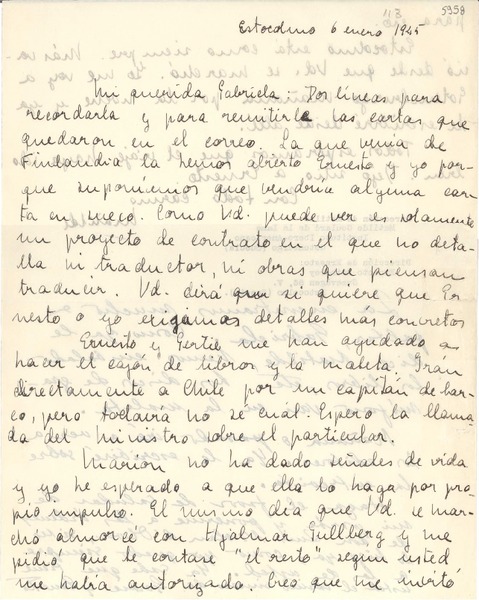 5958
113
Estocolmo 6 enero 1945
Mi querida Gabriela:- Dos líneas para
recordarla y para remitirle las cartas que
quedaron en el correo. La que venía de
Finlandia la hemos abierto Ernesto y yo por-
que suponíamos que vendría alguna car-
ta en sueco. Como Vd. puede ver es solamente
un proyecto de contrato en el que no deta-
lla ni traductor, ni obras que piensan
traducir. Vd. dirá si quiere que Er-
nesto o yo exigamos detalles más concretos
Ernesto y Gertie me han ayudado a
hacer el cajón de libros y la maleta. Irán
directamente a Chile por un capitán de bar-
co, pero todavía no sé cual. Espero la llama-
da del ministro sobre el particular.
Marion no ha dado señales de vida
y yo he esperado a que ella lo haga por pro-
pio impulso. El mismo día que Vd. se mar-
chó almorcé con Hjalmar Gullberg y me
pidió que le contase "el resto" según usted
me había autorizado. Creo que me invitó